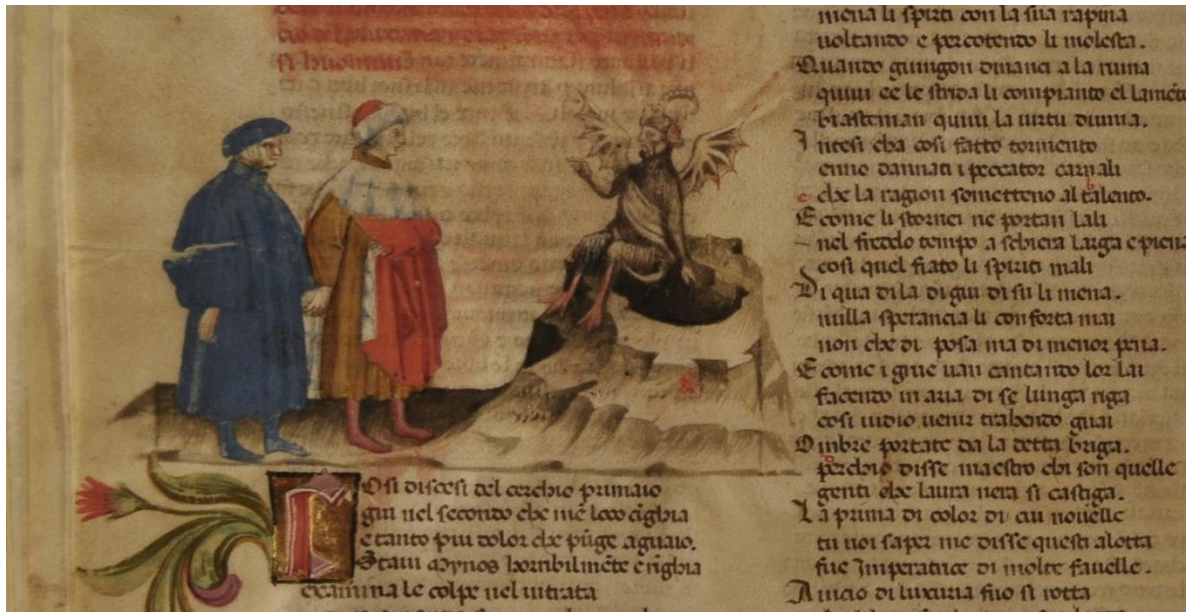 Cosi discesi del cerchio primaio
giu nel secondo che mē loco cīghia
e tanto piu dolor che pūge a guaio.
Stavi mynos horribilmēte e righia
examina le colpe nel intrata
mena li spirti con la sua rapina
uoltando e percotendo li molesta.
Quando giungon dinanci a la ruina
quiui ee le strida li compianto el lamēto
biasteman quiui la uirtu diuina.
Intesi cha cosi fatto tormento
enno dannati i peccator carnali
che la ragion sometteno al talento.
E come li stornei ne portan lali
nel fredo tempo a schiera larga e piena
cosi quel fiato li spiriti mali
Di qua di la di giu di su li mena.
nulla sperancia li conforta mai
non che di posa ma di menor pena.
E come i grue uan cantando lor lai
facendo in aria di se lunga riga
cosi uidio uenir trahendo guai
Ombre portate da la detta briga.
perchio disse maestro chi son quelle
genti che laura nera si castiga.
La prima di color di cui nouelle
tu uoi saper me disse questi alotta
fue Imperatrice di molte fauelle.
A uicio di luxuria fuo si rotta